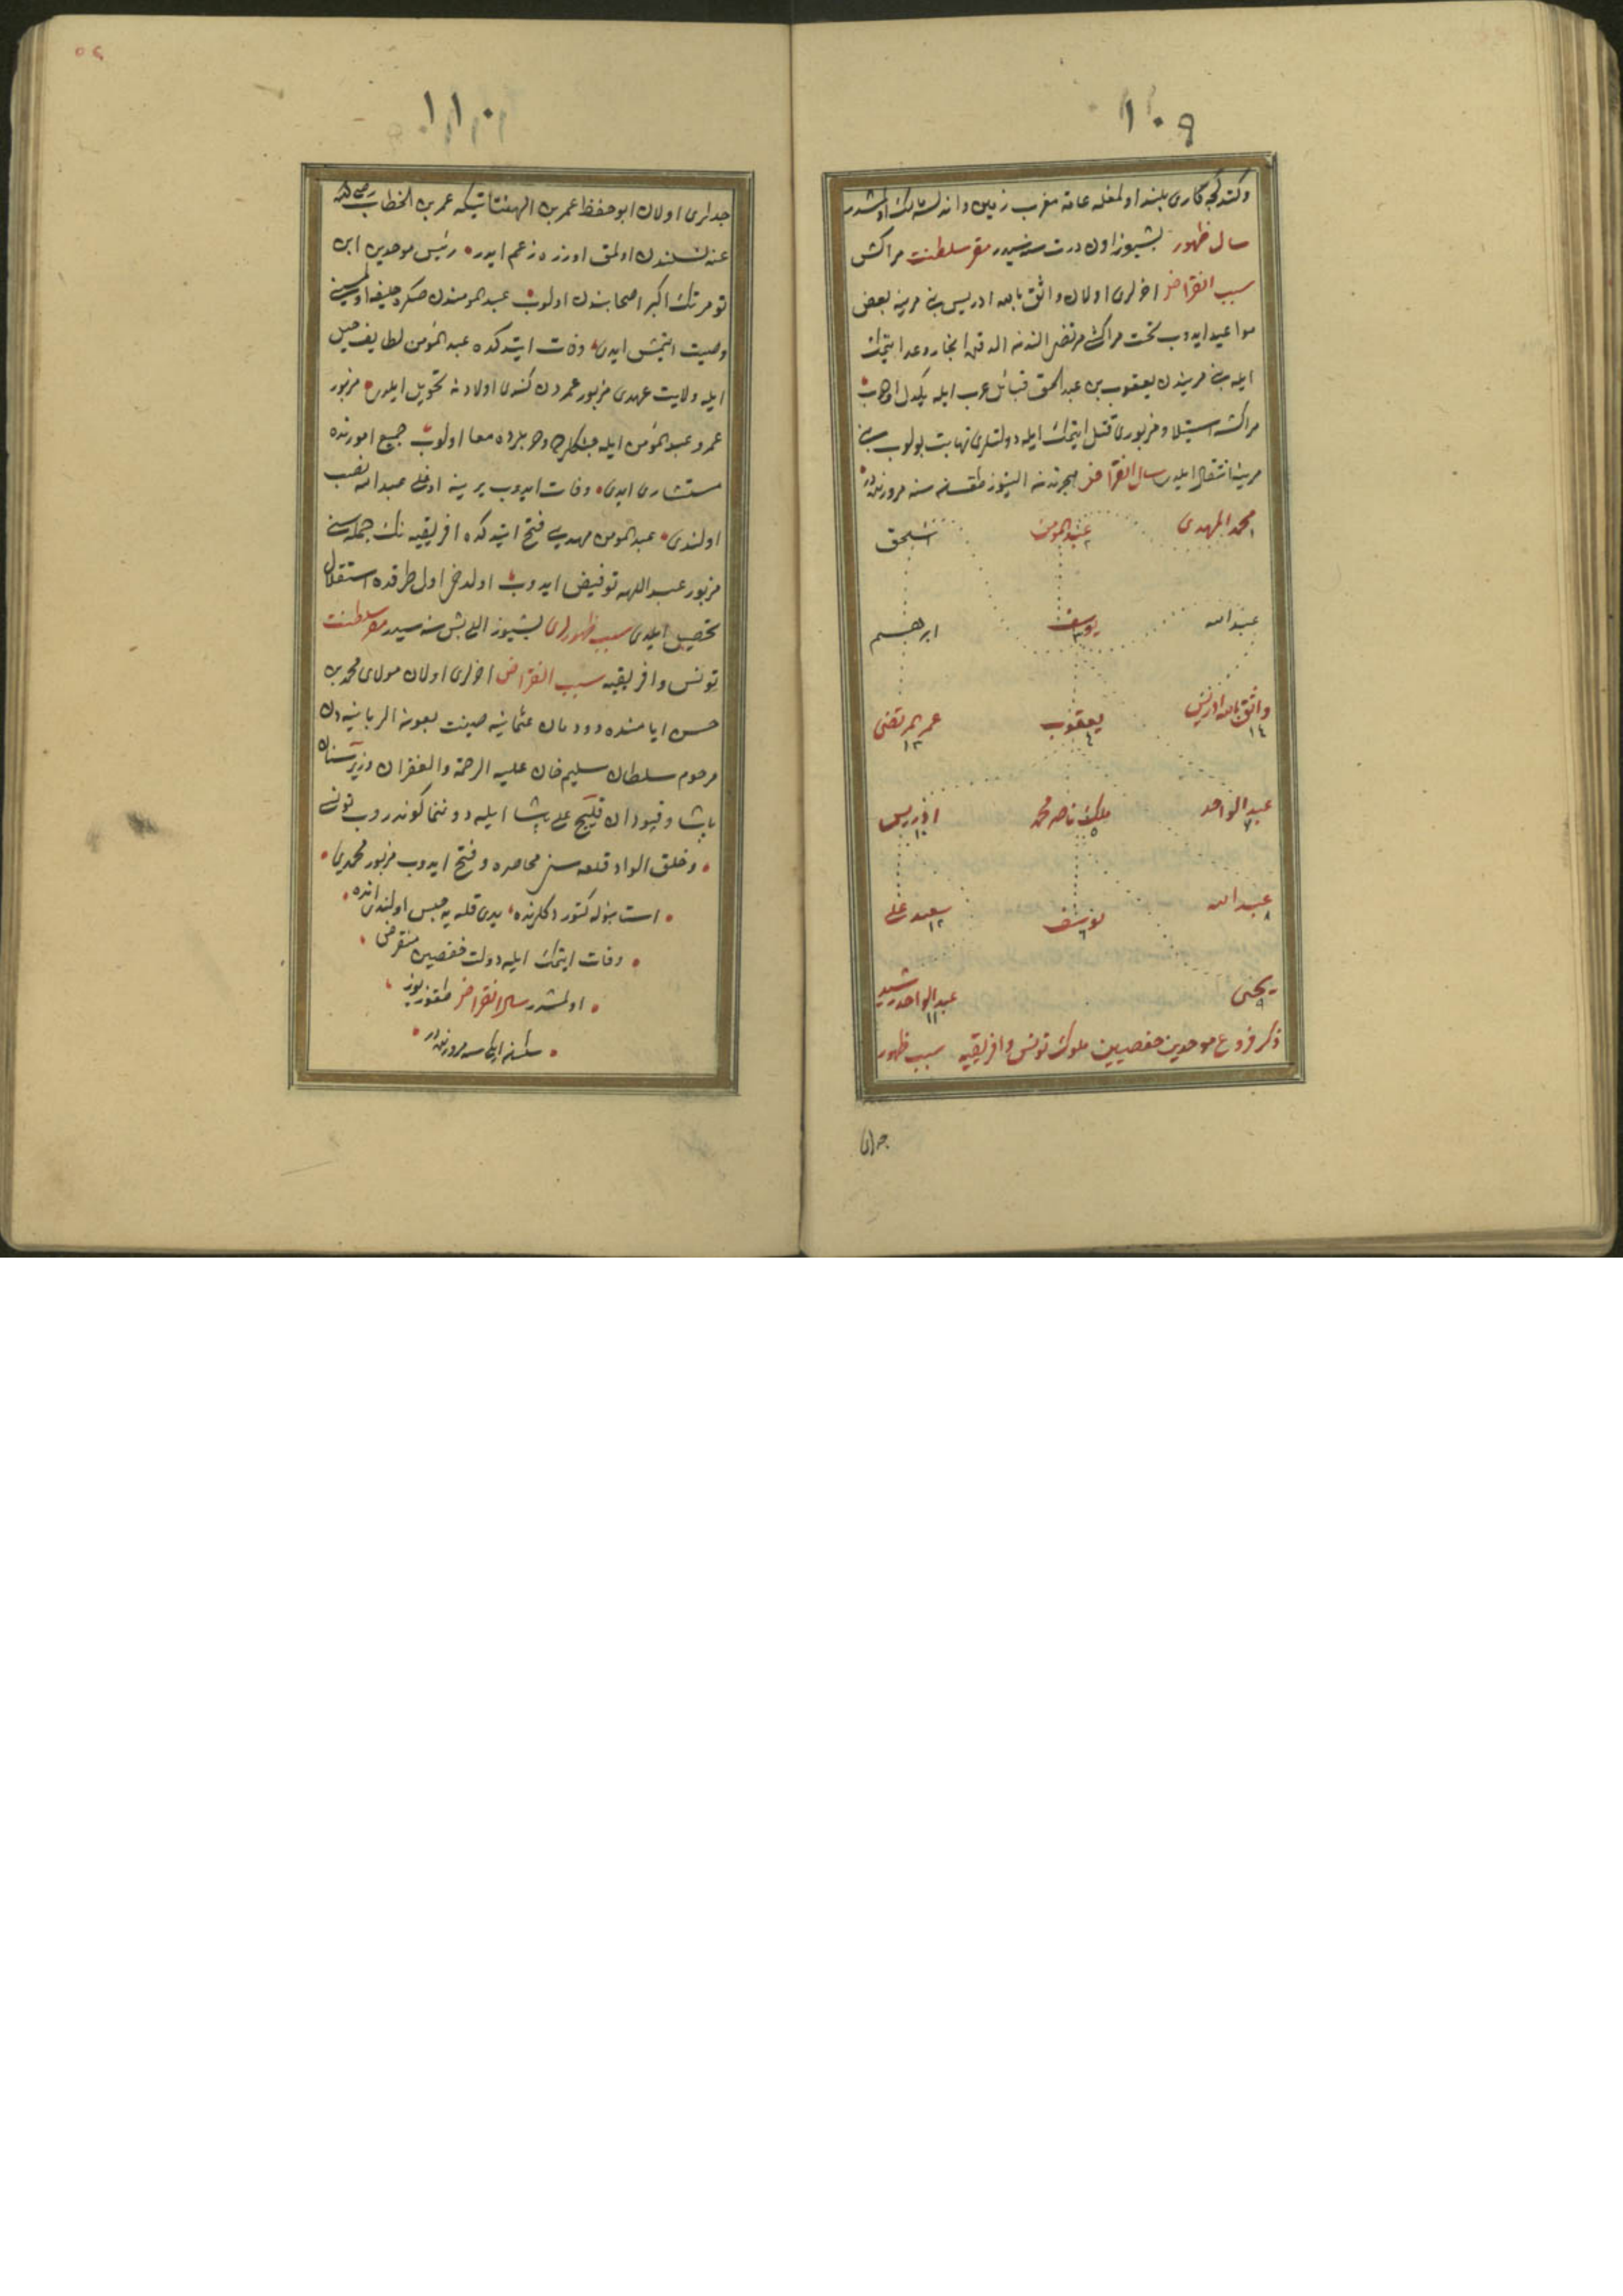 ١٠٩
وكتدكجه كارى بلند اولمغله عامهٔ مغرب زمين واندلسه مالك اولمشدر
سال ظهور بشيوز اون درت سنه سيدر مقر سلطنت مراكش
سبب انقراض اخرلرى اولان واثق بالله ادريس بنى مرينه بعض
مواعيد ايدوب تخت مراكشى مرتضى الندن الدقده انجاز وعد ايتمامك
ايله بنى مريندن يعقوب بن عبد الحق قبائل عرب ايله يكدل اولوب
مراكشه استيلا ومزبورى قتل ايتمك ايله دولتلرى نهايت بولوب بنى
مرينه انتقال ايلدى سال انقراض هجرتدن التيوز طقسان سنه مرورنده در
محمد المهدى ١ عبد المومن ٢ اسحق
عبد الله يوسف ٣ ابرهيم
واثق بالله ادريس ١٤ يعقوب ٤ عمر المرتضى ١٣
عبد الواحد ٧ ملك ناصر محمد ٥ ادريس ١٠
عبد الله ٨ يوسف ٦ سعيد على ١٢
يحيى ٩ عبد الواحد رشيد ١١
ذكر فروع موحدين حفصيين ملوك تونس وافريقيه سبب ظهور
جدلرى
١١٠
جدلرى اولان ابو حفظ عمر بن الهنتاتيكه عمر بن الخطاب رضى الله
عنه نسلندن اولمق اوزره زعم ايدر رئيس موحدين ابن
تومرتك اكبر اصحابندن اولوب عبد المومندن صكره خليفه اولمسنى
وصيت ايتمش ايدى وفات ايتدكده عبد المؤمن لطايف حيل
ايله ولايت عهدى مزبور عمردن كندى اولادنه تحويل ايلدى مزبور
عمر وعبد المؤمن ايله معا اولوب جميع امورنده
مستشارى ايدى وفات ايدوب يرينه اوغلى عبد الله نصب
اولندى عبد المومن مهديه يى فتح ايتدكده افريقيه نك جمله سنى
مزبور عبد اللهه تفويض ايدوب اولدخى اول طرفده استقلال
تحصيل ايلدى سبب ظهورلرى بشيوز اللى بش سنه سيدر مقر سلطنت
تونس وافريقيه سبب انقراض اخرلرى اولان مولاى محمد بن
حسن ايامنده دودمان عثمانيه صينت بعونه الربانيه دن
مرحوم سلطان سليم خان عليه الرحمة والغفران وزيرى سنان
پاشا وقپودان قليج على پاشا ايله دوننما كوندروب تونسى
وخلق الواد قلعه سنى محاصره وفتح ايدوب مزبور محمدى
استانبوله كتوردكلرنده يدى قله يه حبس اولندى انده
وفات ايتمك ايله دولت حفصيين منقرض
اولمشدر سال انقراض طقوز يوز
سكسان ايكى سنه مرورنده در